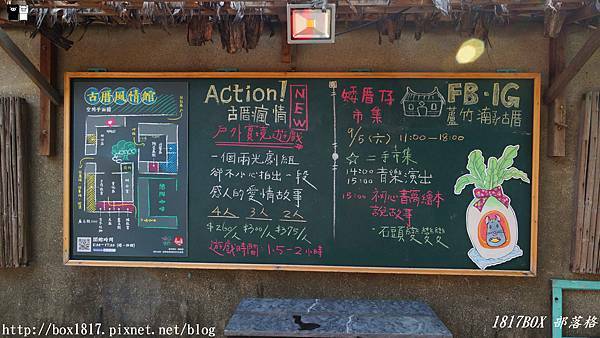 古厝風情館
Action!
NEW
古厝瘋情
戶外實境遊戲
一個兩光劇組
卻不小心拍出一段
感人的愛情故事
4人 3人 2人
$260/人 $300/人 $375/人
遊戲時間：1.5-2小時
矮厝仔
市集
9/5(六) 11:00-18:00
☆二手市集
14:00
15:00 音樂演出
15:00 初心書寓繪本
說故事
-石頭變變變
FB·IG
蘆竹湳古厝
http://box1817.pixnet.net/blog
1817BOX 部落格